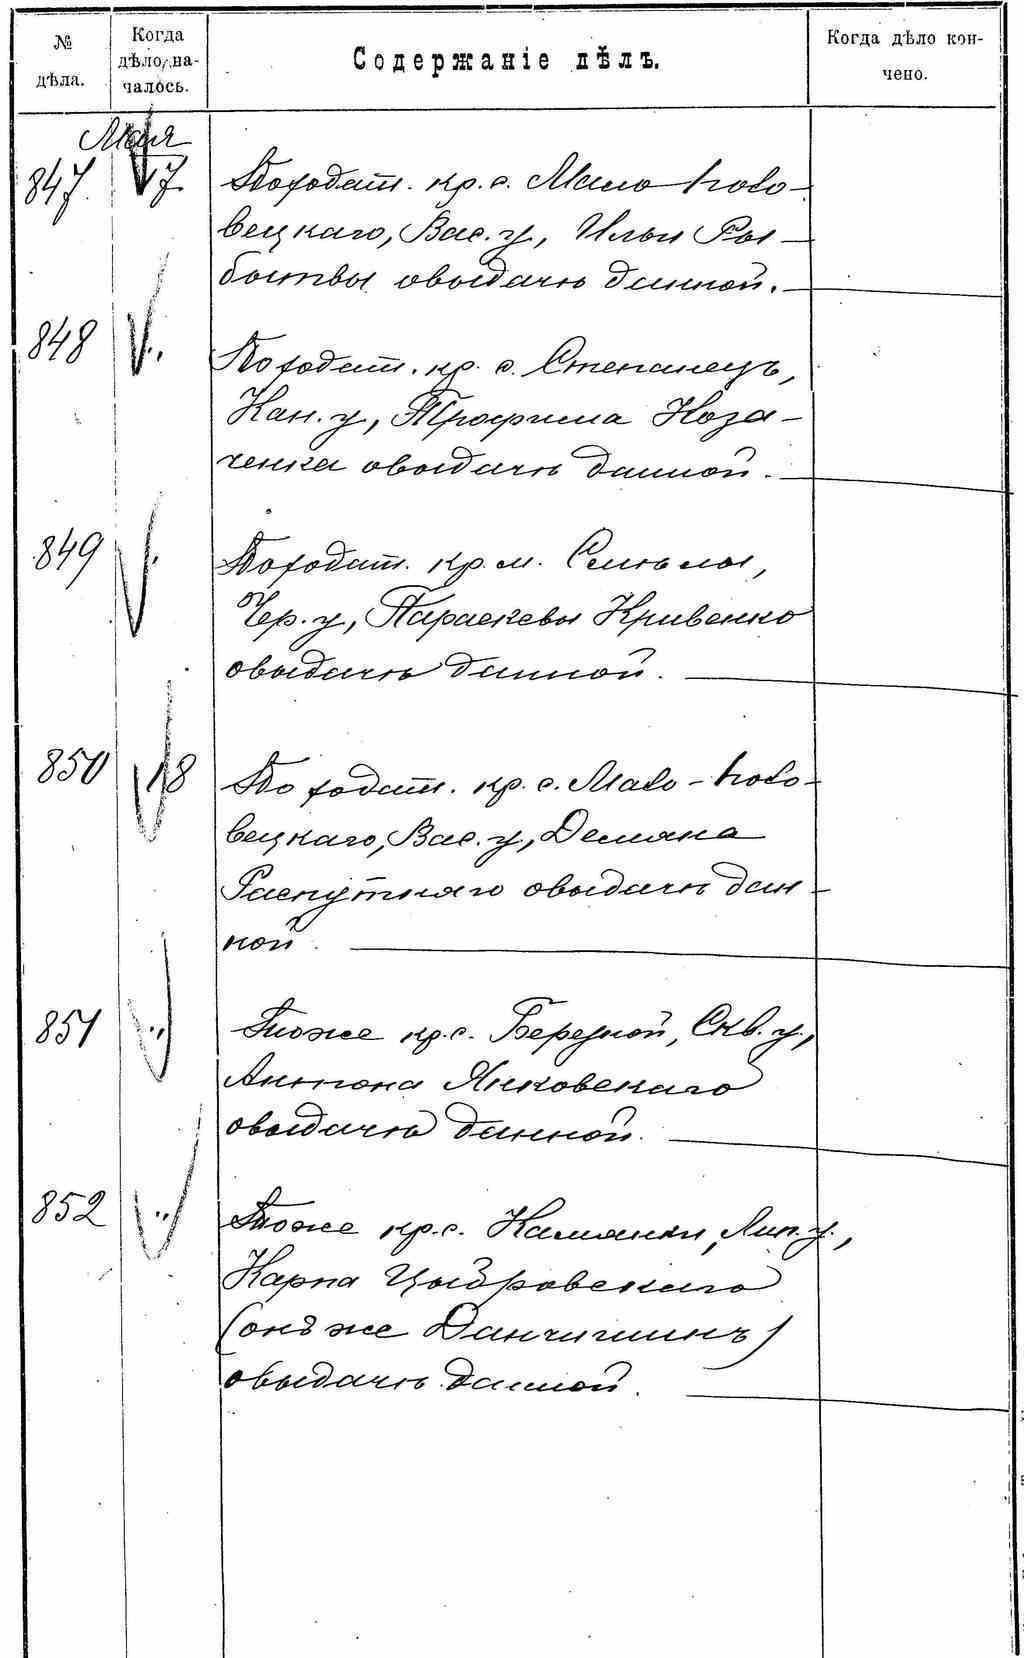 № дѣла.
Когда дѣло на-
чалось.
Содержаніе дѣлъ.
Когда дѣло кон-
чено.
Мая
847. 17. По ходат. кр. с. Мало Поло-
вецкаго, Вас. у, Ильи Ры-
бытвы о выдачѣ данной.
848 „ По ходат. кр. с. Степанецъ,
Кан. у, Трофима Коза-
ченка о выдачѣ данной.
849 „ По ходат. кр. м. Смѣлы,
Чер. у, Параскевы Кривенко
о выдачѣ данной.
850 18 По ходат. кр. с. Мало-Поло-
вецкаго, Вас. у, Демяна
Распутняго о выдачѣ дан-
ной.
851 „ Тоже кр. с. Березной, Скв. у.,
Антона Янковскаго
о выдачѣ данной.
852 „ Тоже кр. с. Камянки, Лип. у.,
Карпа Цыбровскаго
(онъ же Данчишинъ)
о выдачѣ данной.